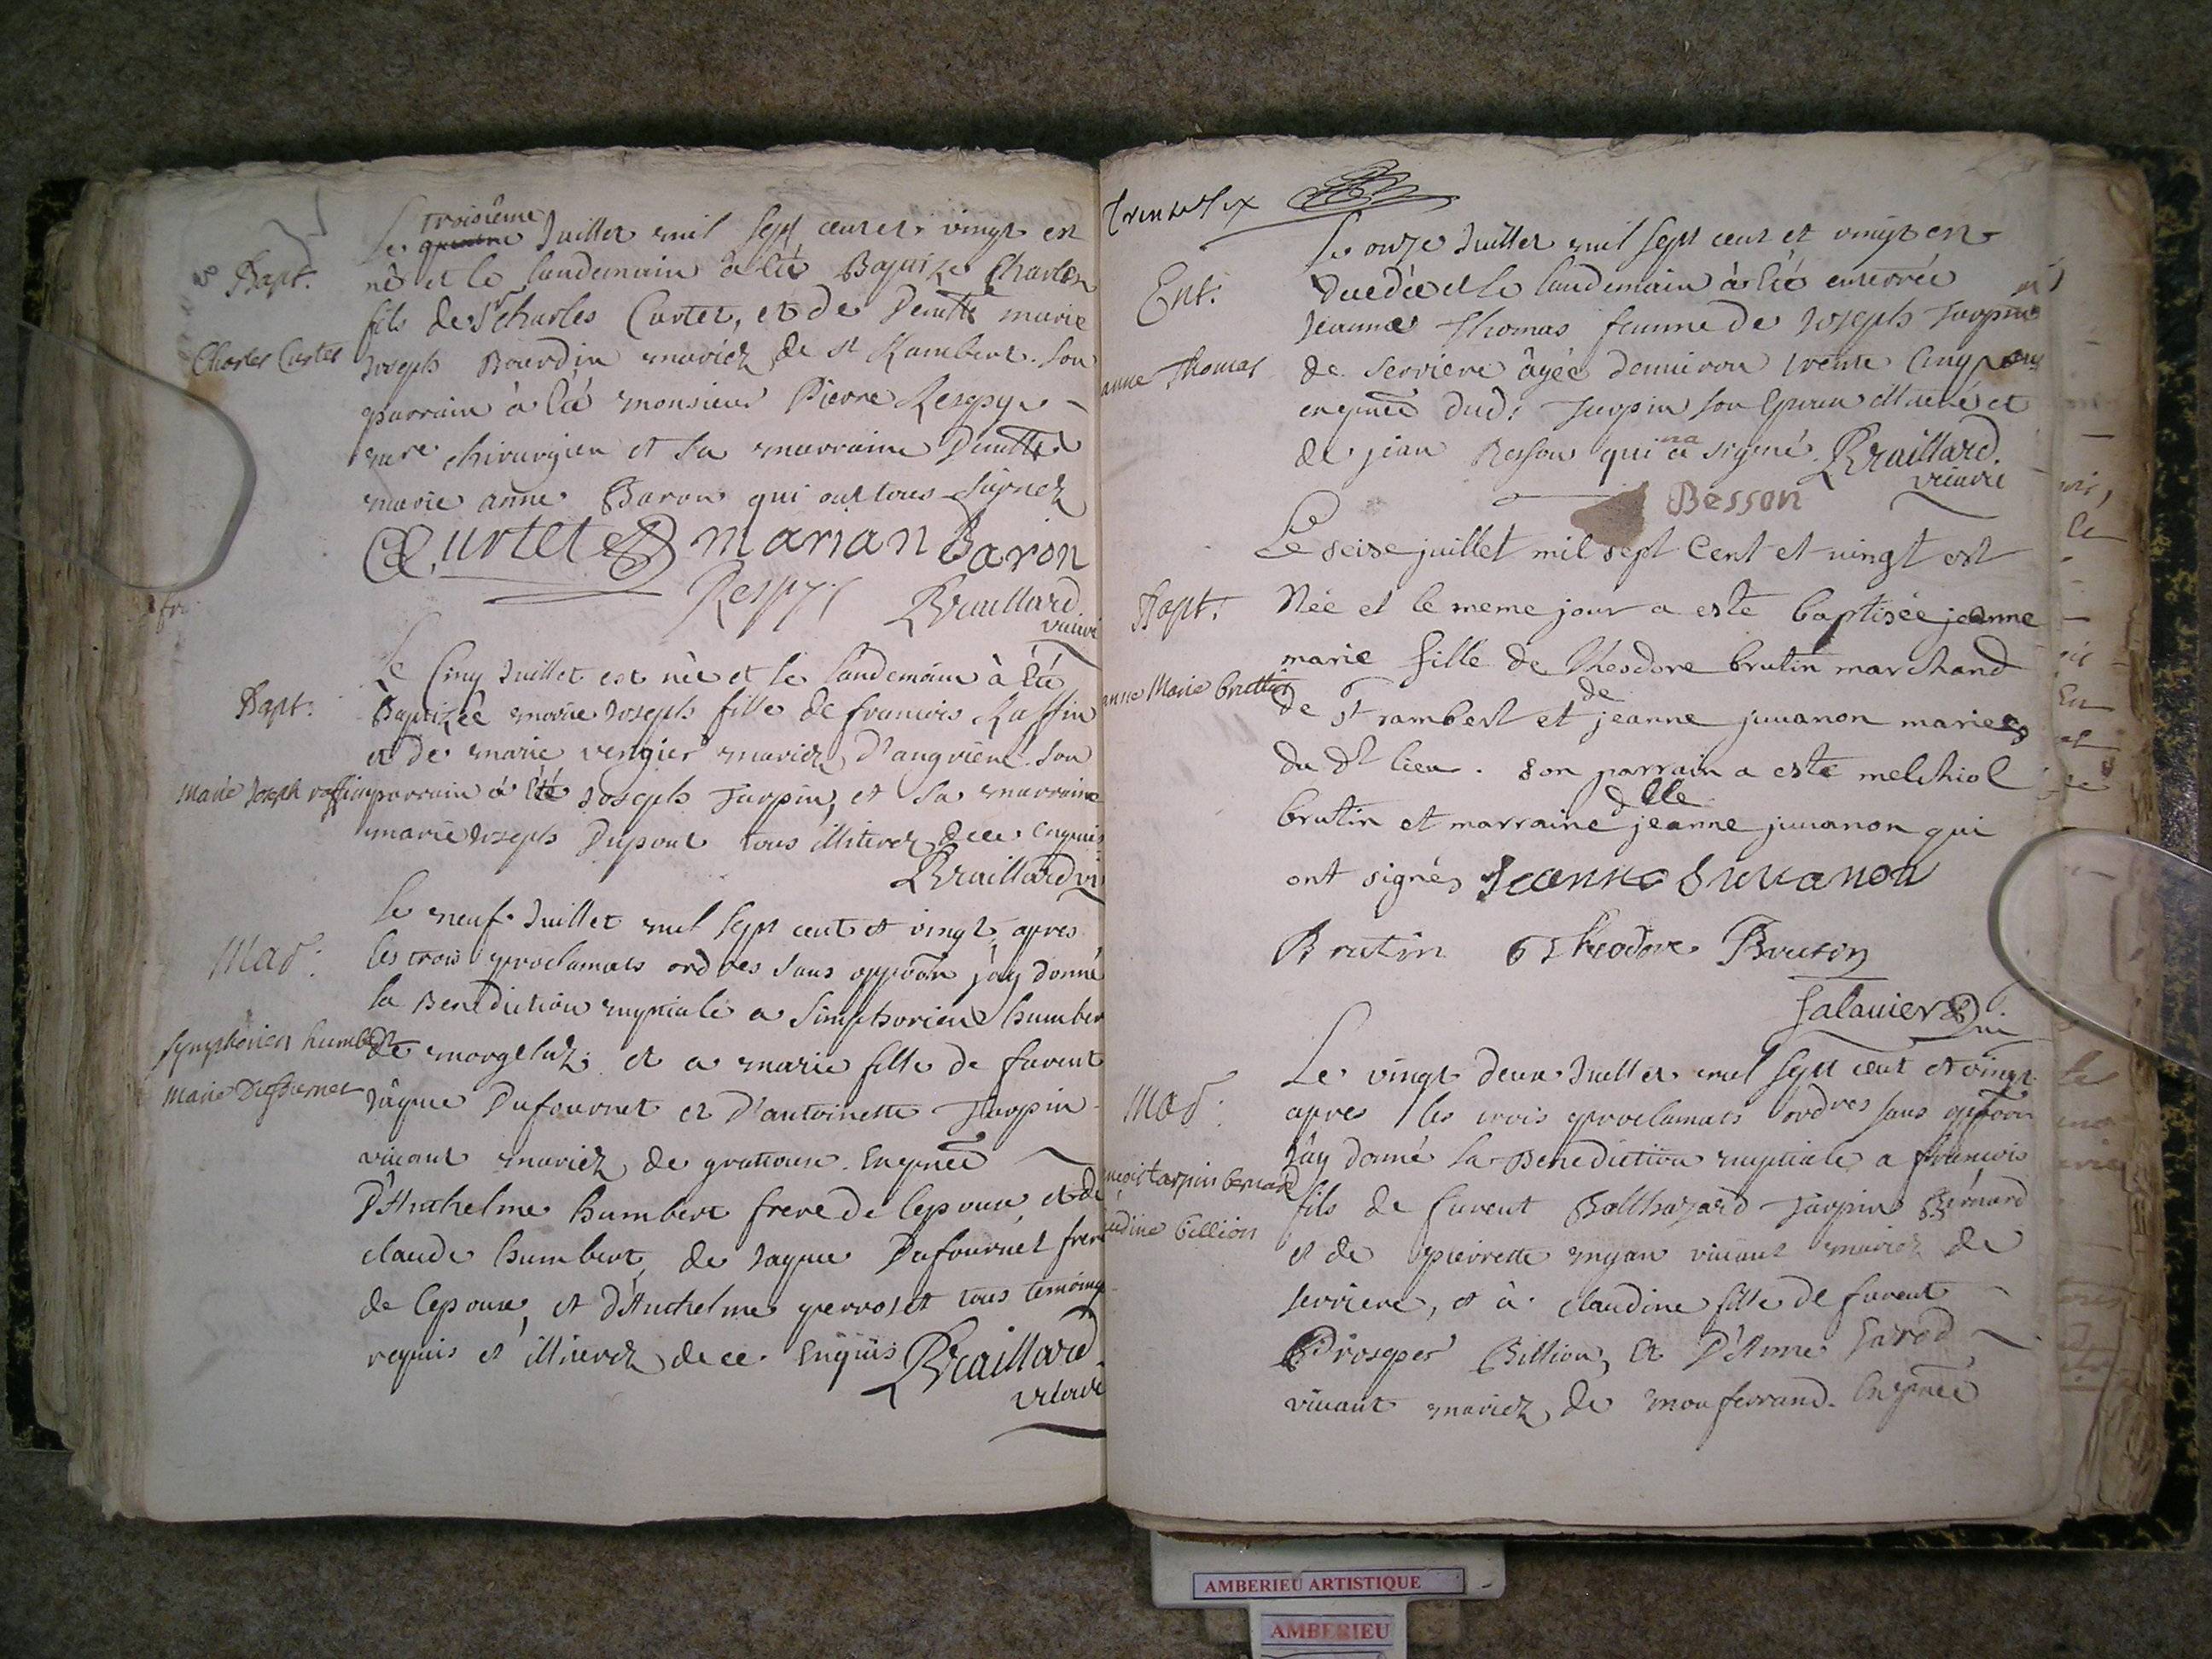 Bapt.
Charles Curtet
Le troisième quatre Juillet mil sept cent et vingt est
né et le landemain à été Baptizé Charles
fils de Sr Charles Curtet, et de Demlle marie
Joseph Bourdin mariez de st Rambert. Son
parrain à été monsieur Pierre Respy
mre chirurgien et sa marraine Demlle
marie anne Baron qui ont tous signez
Curtet marian Baron
Respy Braillard
vicaire
Bapt.
Marie Joseph raffin
Le Cinq Juillet est née et le landemain à été
Baptizée marie Joseph fille de francois Raffin
et de marie vengier mariez d'angriene. Son
parrain à été Joseph Jarpin, et sa marraine
marie Joseph Dupont tous illiterez de ce enquis
Braillard vi
Mar.
Symphorien humbert
Marie Dufournet
Le neuf Juillet mil sept cent et vingt apres
les trois proclamats ordres sans oppoon j'ay donné
la Benediction nuptiale a Simphorien humber
de morgelaz et a marie fille de furent
Jâque Dufournet et D'antoinette Jarpin
vivant mariez de grattoux. En pnce
D'Anthelme humbert frere de lepoux, et de
claude humbert, de Jaque Dufournet frere
de lepouse, et d'Anthelme perroset tous temoins
requis et illiterez de ce enquis Braillard
vicaire
trente six
Ent.
anne Thomas
Le onze Juillet mil sept cent et vingt est
decedée et le landemain à été enterrée
Jeanne Thomas femme de Joseph Jarpin
de serriere âgée d'environ trente cinq ans
en pnce dud. Jarpin son epoux illitéré et
de jean Besson qui na a signé Braillard
vicaire
Besson
Bapt.
anne Marie bruttin
Le seise juillet mil sept Cent et vingt est
Née et le meme jour a este baptisée jeanne
marie fille de Theodore brutin marchand
de St rambert et de jeanne juvanon maries
du dt lieu. son parrain a este melchiol
brutin et marraine dlle jeanne juvanon qui
ont signés Jeanne Juvanon
Brutin Theodore Brutin
Jalavier
Mar.
ncois tarpin bernard
udine billion
Le vingt deux Juillet mil sept cent et vingt
apres les trois proclamats ordres sans oppoon
J'ay donné la Benediction nuptiale a francois
fils de furent Balthazard Jarpin Bernard
et de pierrette myan vivant mariez de
serriere, et à claudine fille de furent
Prosper Billion, Et D'Anne Jarod
vivant mariez de monferrand. En pnce
AMBERIEU ARTISTIQUE
AMBERIEU